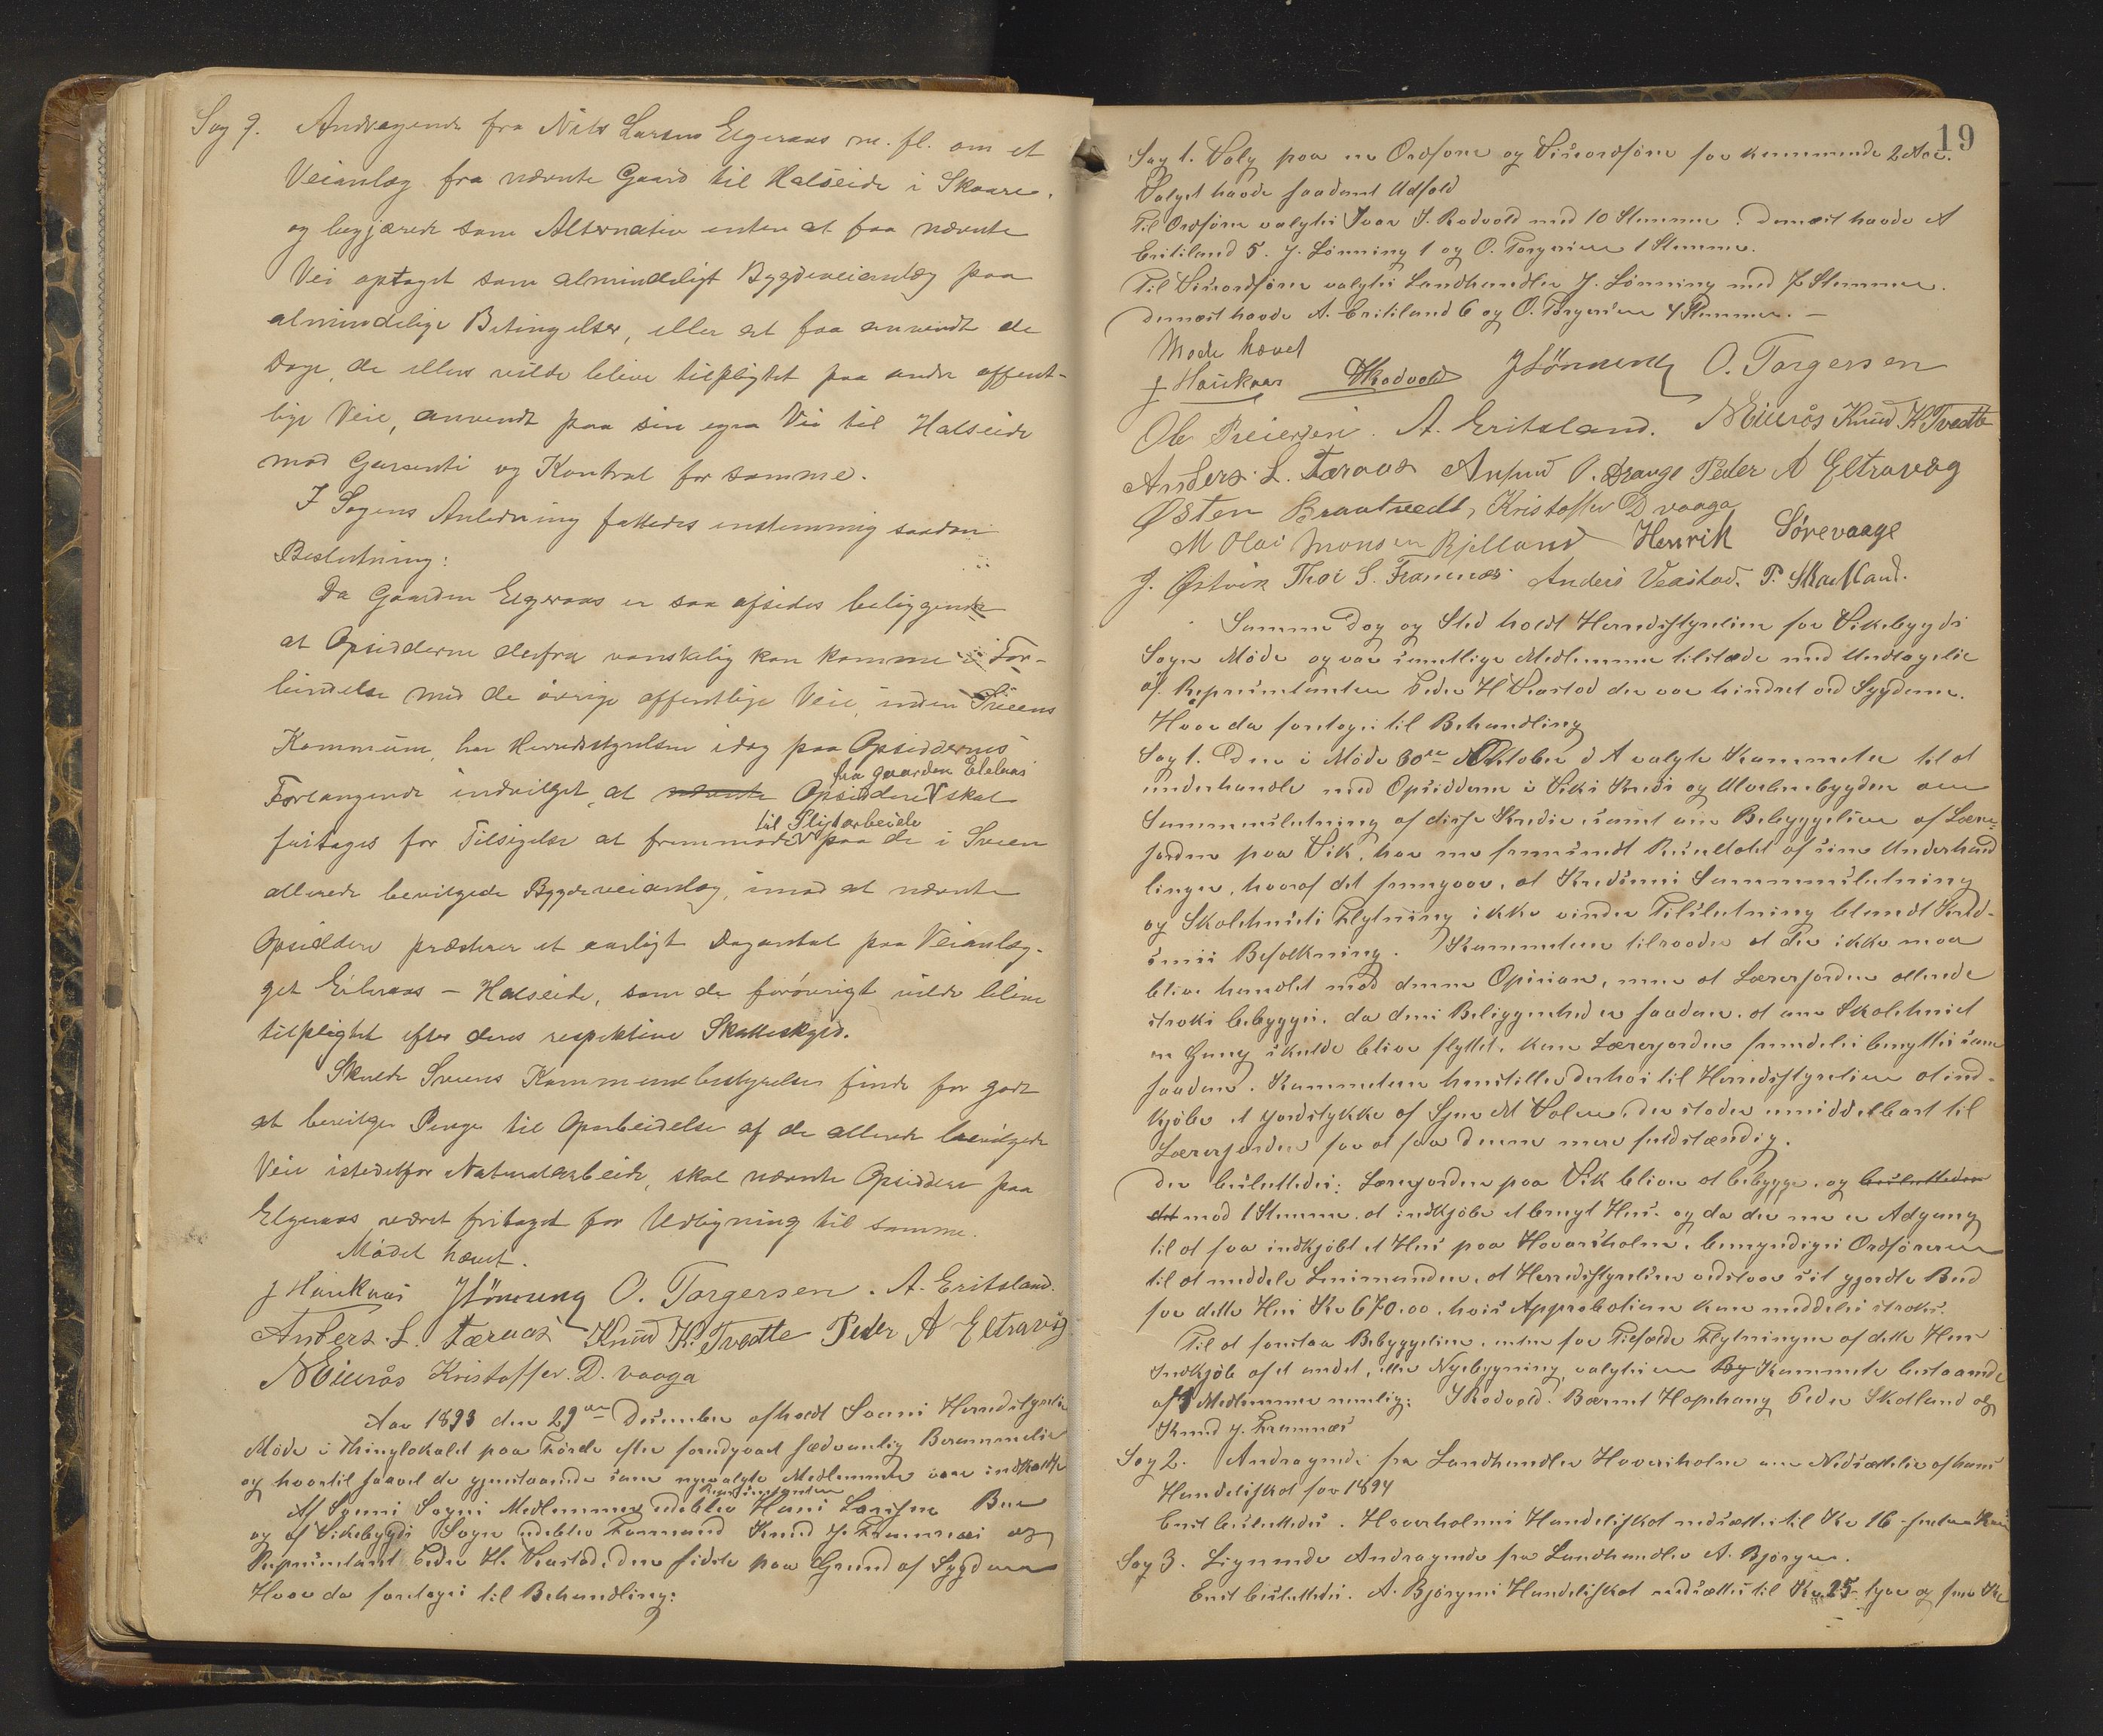 Sag 9. Andragende fra Nils Larsen Elgeraas m. fl. om et
Veianlæg fra nævnte Gaard til Halseide i Skaare,
og begjærede som Alternativ enten at faa nævnte
Vei optaget som almindeligt Bygdeveianlæg paa
almindelige Betingelser, eller at faa anvendt de
Dage, de ellers vilde blive tilpligtet paa andre offent-
lige Veie, anvendt paa sin egen Vei til Halseide
mod Garanti og Kontrol for samme.
I Sagens Anledning fattedes enstemmig saadan
Beslutning:
Da Gaarden Elgeraas er saa afsides beliggende
at Opsidderne derfra vanskelig kan komme i For-
bindelse med de øvrige offentlige Veie, inden Sveens
Kommune, har Herredsstyrelsen idag paa Opsiddernes
fra gaarden Eleraas
Forlangende indvilget, at nævnte Opsiddere skal
til Pligtarbeide
fritages for Tilsigelse at fremmøde paa de i Sveen
allerede bevilgede Bygdeveianlæg, imod at nævnte
Opsiddere præsterer et aarligt Dagantal paa Veianlæg-
get Eileraas - Halseide, som de forøvrigt vilde blive
tilpligtet efter deres respektive Skatteskyld.
Skulde Sveens Kommunebestyrelse finde for godt
at bevilge Penge til Oparbeidelse af de allerede bevilgede
Veie istedetfor Naturalarbeide, skal nævnte Opsiddere paa
Elgeraas været fritaget for Udligning til samme.
Mødet hævet.
J Haukaas J Lønning O. Torgersen. A. Eritsland.
Anders. L. Færaas Knud K. Tvedte Peder A Eltravåg
N Eiurås Kristoffer. D. vaaga
Aar 1893 den 29de December afholdt Sveens Herredsstyrelse
Møde i Thinglokalet paa Førde efter forudgaaet sædvanlig Berammelse
og hvortil saavel de gjenstaaende som nyvalgte Medlemmer var indkaldte
Repræsentanten
Af Sveens Sogns Medlemmer udeblev Hans Larssen Bue
og af Vikebygds Sogn udeblev Formand Knud J. Framnæs og
Repræsentant Peder H. Veastad, den sidste paa Grund af Sygdom
Hvor da foretoges til Behandling:
19
Sag 1. Valg paa en Ordfører og Viceordfører for kommende 2 Aar.
Valget havde saadant Udfald
Til Ordfører valgtes Ivar J. Rødvold med 10 Stemmer. Dernæst havde A
Eritsland 5. J. Lønning 1 og O. Torgersen 1 Stemme.
Til Viceordfører valgtes Landhandler J. Lønning med 7 Stemmer.
Dernæst havde A. Eritsland 6 og O. Torgersen 4 Stemmer. -
Mode hævet
J Haukaas IRødvold J Lønning O. Torgersen
Ole Preiersen. A. Eritsland. N Eiurås Knud K Tvedte
Anders. L. Færaas Anfind O. Drange Peder A Eltravåg
Østen Braatvedt, Kristoffer D vaaga
M Olai Monsen Bjelland Henrik Sørevaage
J. Østvik Thor S. Framnæs Anders Veastad. P. Skatland.
Samme Dag og Sted holdt Herredsstyrelsen for Vikebygds
Sogn Møde og var samtlige Medlemmer tilstede med Undtagelse
af Repræsentanten Peder H Veastad der var hindret ved Sygdom.
Hvor da foretoges til Behandling
Sag 1. Den i Møde 30te Oktober d A valgte Kommitee til at
underhandle med Opsidderne i Viks Kreds og Ulvebnebygden om
Sammenslutning af disse Kredse samt om Bebyggelsen af Lærer-
jorden paa Vik, har nu fremsendt Resultatet af sine Underhand
linger, hvoraf det fremgaar, at Kredsenes Sammenslutning
og Skolehusets Flytning ikke vinder Tilslutning blandt Kred-
senes Befolkning. Kommiteen tilraader at der ikke maa
blive handlet mod denne Opinion, men at Lærerjorden allerede
straks bebygges, da dens Beliggenhed er saadan, at om Skolehuset
en Gang skulde blive flyttet, kan Lærerjorden fremdeles benyttes som
saadan. Kommiteen henstiller derhos til Herredsstyrelsen at ind-
kjøbe et Jordstykke af Sjur M Valen, der støder umiddelbart til
Lærerjorden for at faa denne mere fuldstændig.
Der besluttedes: Lærerjorden paa Vik bliver at bebygge, og besluttedes
det mod 1 Stemme, at indkjøbe et brugt Hus. og da der nu er Adgang
til at faa indkjøbt et Hus paa Hovarsholm, bemyndiges Ordføreren
til at meddele Lensmanden, at Herredsstyrelsen vedstaar sit gjordte Bud
for dette Hus Kr 670.00, hvis Approbation kan meddeles straks.
Til at forestaa Bebyggelsen, enten for Tilfælde Flytningen af dette Hus
Indkjøb af et andet, eller Nybygning, valgtes en By Kommite bestaaende
af 4 Medlemmer nemlig: I Rødvold. Bærent Hopshaug Peder Skatland og
Knud J. Framnæs
Sag 2. Andragende fra Landhandler Hovarsholm om Nedsættelse af hans
Handelsskat for 1894
Enst besluttedes. Hovarholms Handelsskat nedsættes til Kr 16 - sexten Kron
Sag 3. Lignende Andragende fra Landhandler A. Bjørgen.
Enst besluttedes. A. Bjørgens Handelsskat nedsættes til Kr 25 - tyve og fem Kr